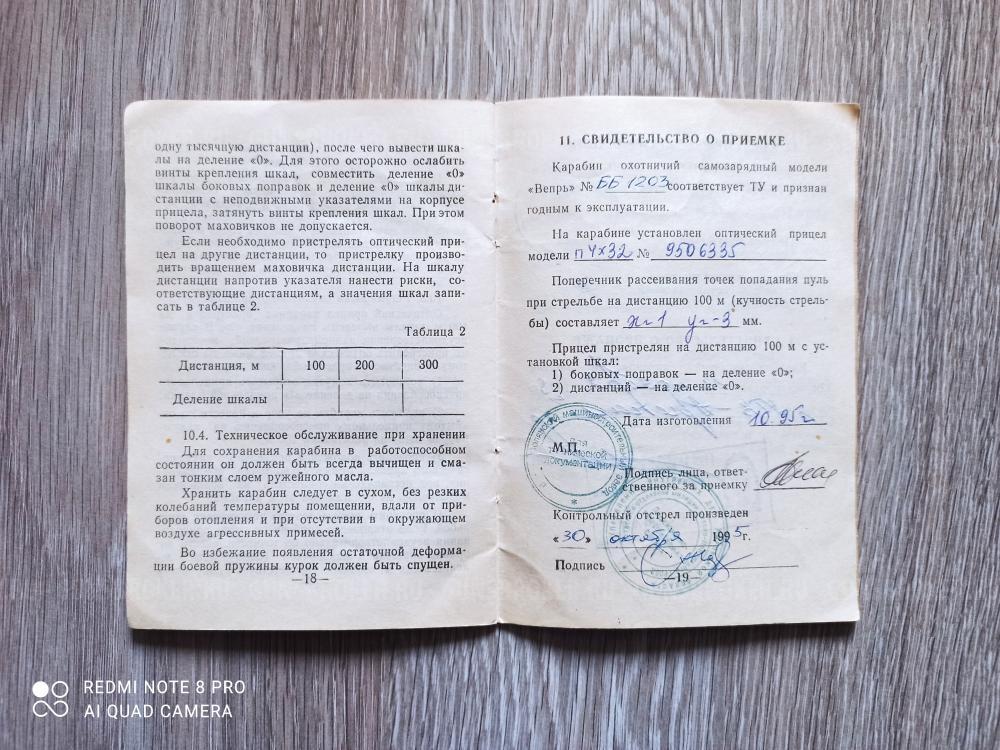 одну тысячную дистанции), после чего вывести шка-
лы на деление «0». Для этого осторожно ослабить
винты крепления шкал, совместить деление «0»
шкалы боковых поправок и деление «0» шкалы ди-
станции с неподвижными указателями на корпусе
прицела, затянуть винты крепления шкал. При этом
поворот маховичков не допускается.
Если необходимо пристрелять оптический при-
цел на другие дистанции, то пристрелку произво-
дить вращением маховичка дистанции. На шкалу
дистанции напротив указателя нанести риски, со-
ответствующие дистанциям, а значения шкал запи-
сать в таблице 2.
Таблица 2
Дистанция, м 100 200 300
Деление шкалы
10.4. Техническое обслуживание при хранении
Для сохранения карабина в работоспособном
состоянии он должен быть всегда вычищен и сма-
зан тонким слоем ружейного масла.
Хранить карабин следует в сухом, без резких
колебаний температуры помещении, вдали от при-
боров отопления и при отсутствии в окружающем
воздухе агрессивных примесей.
Во избежание появления остаточной деформа-
ции боевой пружины курок должен быть спущен.
—18—
11. СВИДЕТЕЛЬСТВО О ПРИЕМКЕ
Карабин охотничий самозарядный модели
«Вепрь» № ББ 1203 соответствует ТУ и признан
годным к эксплуатации.
На карабине установлен оптический прицел
модели п 4х32 № 9506335
Поперечник рассеивания точек попадания пуль
при стрельбе на дистанцию 100 м (кучность стрель-
бы) составляет мм.
Прицел пристрелян на дистанцию 100 м с ус-
тановкой шкал:
1) боковых поправок — на деление «0»;
2) дистанций — на деление «0».
Дата изготовления 10.95г
М.П.
машиностроительный завод
Для
технической
документации
Подпись лица, ответ-
ственного за приемку
Контрольный отстрел произведен
«30» октября 1995г.
Подпись
—19—
REDMI NOTE 8 PRO
AI QUAD CAMERA